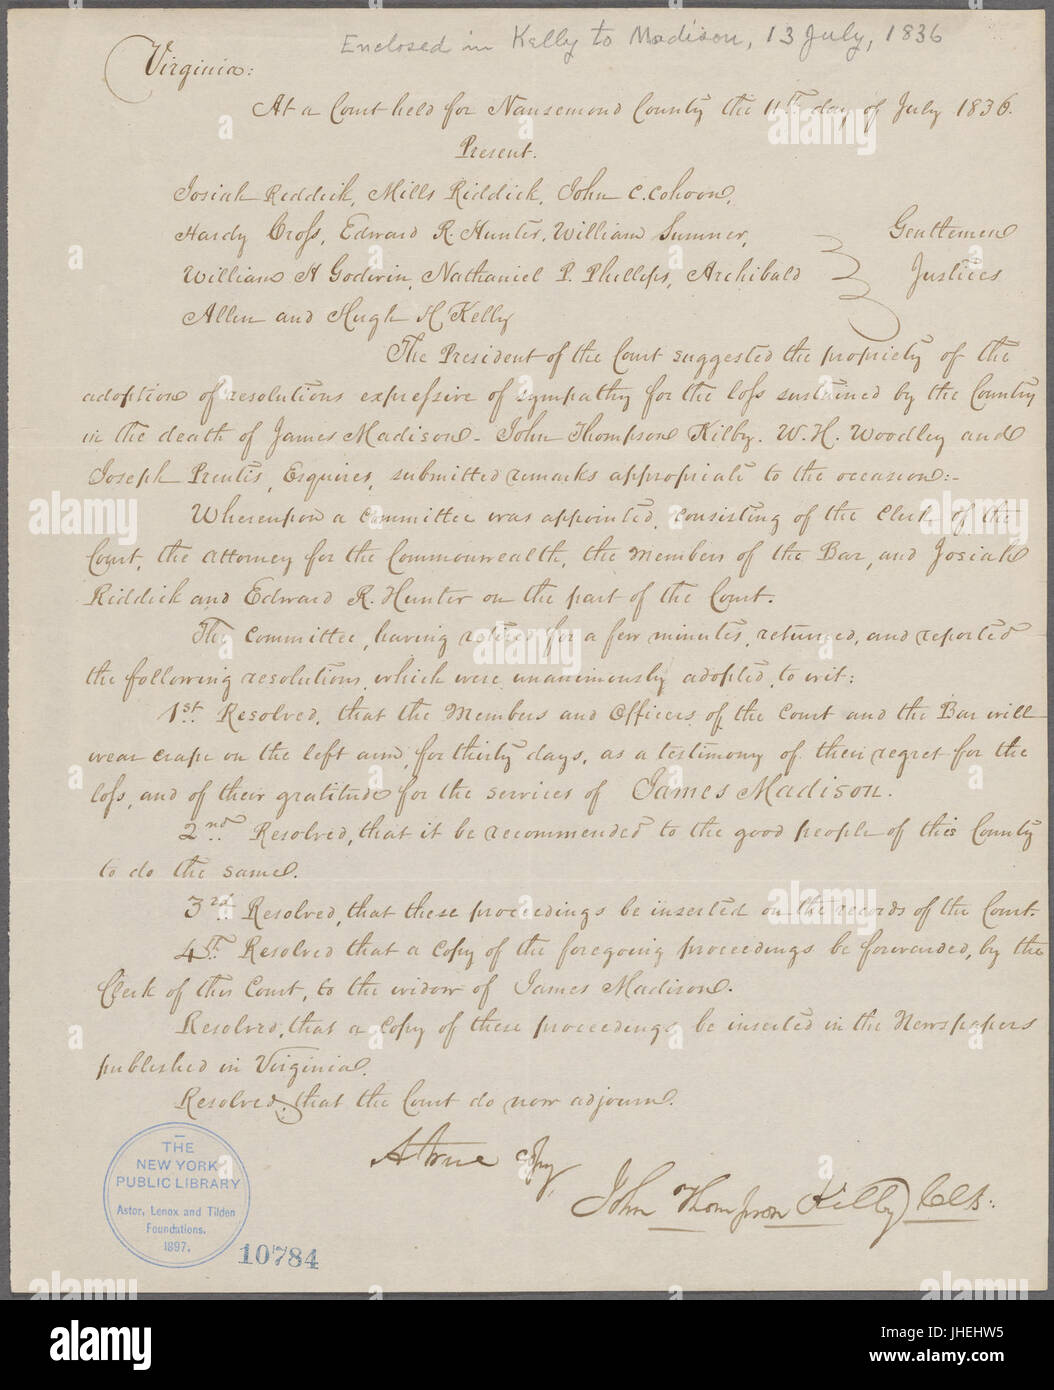 Enclosed in Kelly to Madison, 13 July, 1836
Virginia:
At a Court held for Nansemond County the 11th day of July 1836.
Present.
Josiah Reddick, Mills Riddick, John C. Cohoon,
Hardy Cross, Edward R. Hunter, William Sumner,
Gentlemen
William H Godwin, Nathaniel P. Phillips, Archibald
Justices
Allen and Hugh H Kelly
The President of the Court suggested the propriety of the
adoption of resolutions expressive of sympathy for the loss sustained by the County
in the death of James Madison - John Thompson Kilby. W. H. Woodley and
Joseph Prentis, Esquires, submitted remarks appropriate to the occasion:-
Whereupon a Committee was appointed, consisting of the Clerk of the
Court, the attorney for the Commonwealth, the Members of the Bar, and Josiah
Riddick and Edward R. Hunter on the part of the Court.
The Committee, having retired for a few minutes, returned, and reported
the following resolutions, which were unanimously adopted, to wit:
1st. Resolved, that the Members and Officers of the Court and the Bar will
wear crape on the left arm, for thirty days, as a testimony of their regret for the
loss, and of their gratitude for the services of James Madison.
2nd. Resolved, that it be recommended to the good people of this County
to do the same.
3rd Resolved, that these proceedings be inserted on the records of the Court.
4th. Resolved that a copy of the foregoing proceedings be forwarded, by the
Clerk of this Court, to the widow of James Madison.
Resolved, that a copy of these proceedings be inserted in the Newspapers
published in Virginia.
Resolved, that the Court do now adjourn.
A true copy,
John Thompson Kilby Clk:
THE
NEW YORK
PUBLIC LIBRARY
Astor, Lenox and Tilden
Foundations.
1897.
10784
alamy stock photo
alamy
Image ID: JHEHW5
www.alamy.com